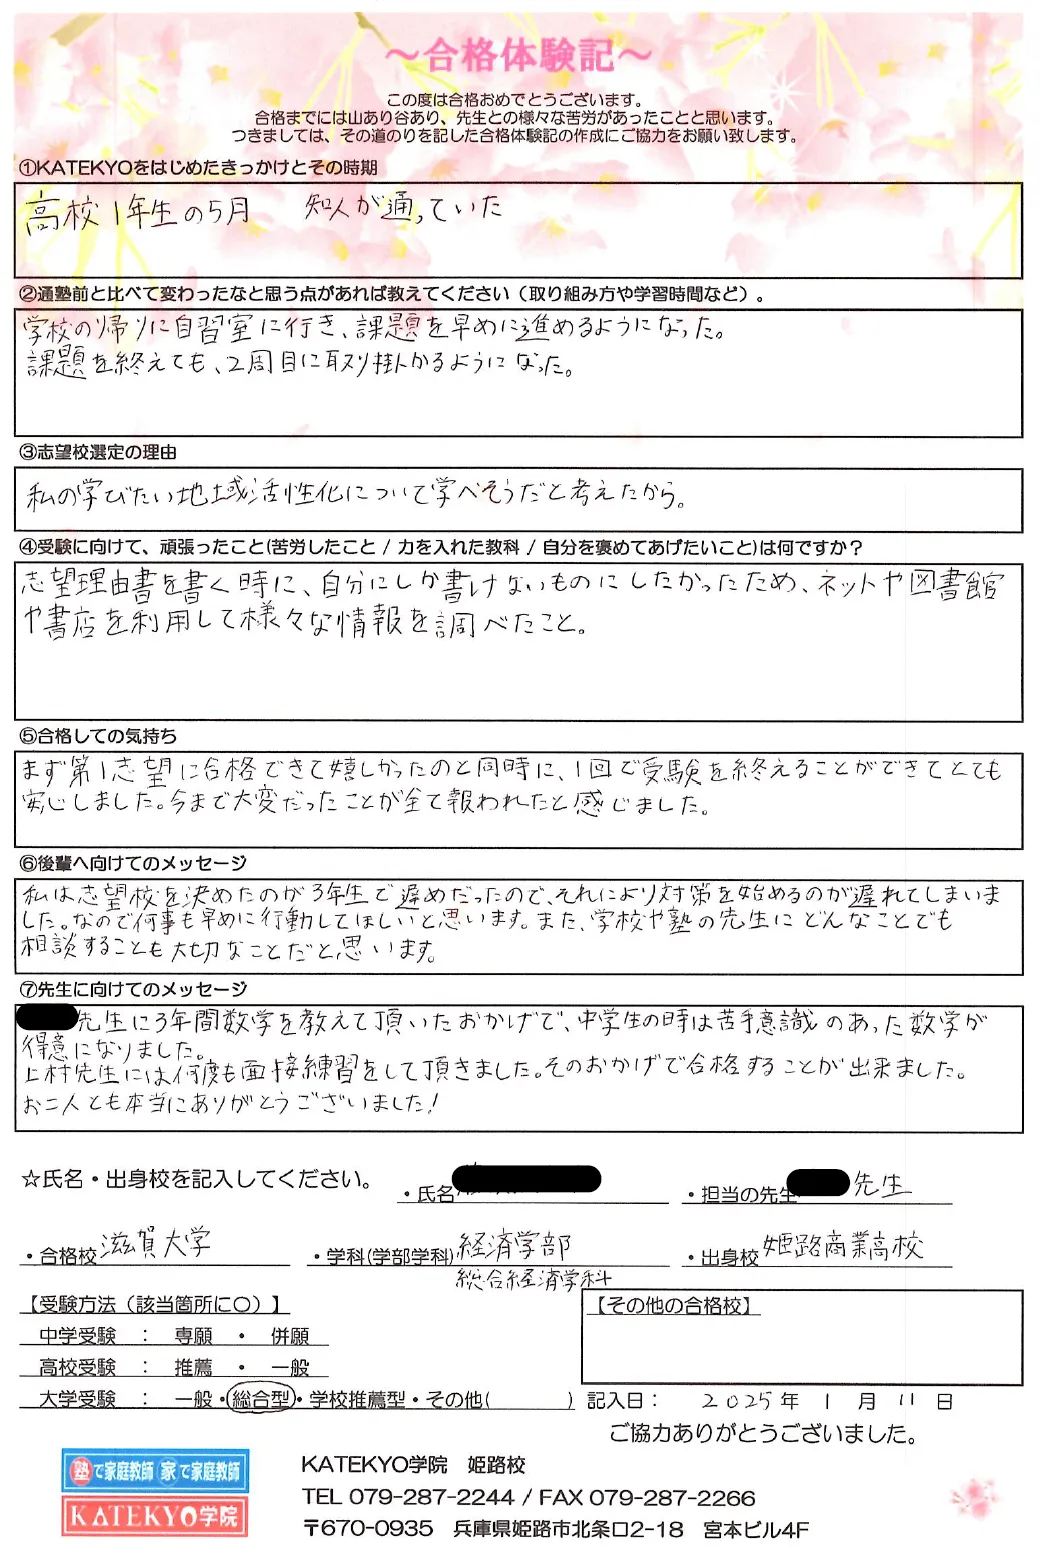 ～合格体験記～
この度は合格おめでとうございます。
合格までには山あり谷あり、先生との様々な苦労があったことと思います。
つきましては、その道のりを記した合格体験記の作成にご協力をお願い致します。
①KATEKYOをはじめたきっかけとその時期
高校1年生の5月　知人が通っていた
②通塾前と比べて変わったなと思う点があれば教えてください（取り組み方や学習時間など）。
学校の帰りに自習室に行き、課題を早めに進めるようになった。
課題を終えても、2周目に取り掛かるようになった。
③志望校選定の理由
私の学びたい地域活性化について学べそうだと考えたから。
④受験に向けて、頑張ったこと(苦労したこと / 力を入れた教科 / 自分を褒めてあげたいこと)は何ですか？
志望理由書を書く時に、自分にしか書けないものにしたかったため、ネットや図書館
や書店を利用して様々な情報を調べたこと。
⑤合格しての気持ち
まず第1志望に合格できて嬉しかったのと同時に、1回で受験を終えることができてとても
安心しました。今まで大変だったことが全て報われたと感じました。
⑥後輩へ向けてのメッセージ
私は志望校を決めたのが3年生で遅めだったので、それにより対策を始めるのが遅れてしまいま
した。なので何事も早めに行動してほしいと思います。また、学校や塾の先生にどんなことでも
相談することも大切なことだと思います。
⑦先生に向けてのメッセージ
先生に3年間数学を教えて頂いたおかげで、中学生の時は苦手意識のあった数学が
得意になりました。
上村先生には何度も面接練習をして頂きました。そのおかげで合格することが出来ました。
お二人とも本当にありがとうございました!
☆氏名・出身校を記入してください。
・氏名
・担当の先生 先生
・合格校 滋賀大学
・学科(学部学科) 経済学部
総合経済学科
・出身校 姫路商業高校
【受験方法（該当箇所に〇）】
中学受験　：　専願　・　併願
高校受験　：　推薦　・　一般
大学受験　：　一般・総合型・学校推薦型・その他(　　　　)
【その他の合格校】
記入日：　2025年　1　月　11　日
ご協力ありがとうございました。
塾で家庭教師 家で家庭教師
KATEKYO学院
KATEKYO学院　姫路校
TEL 079-287-2244 / FAX 079-287-2266
〒670-0935　兵庫県姫路市北条口2-18　宮本ビル4F